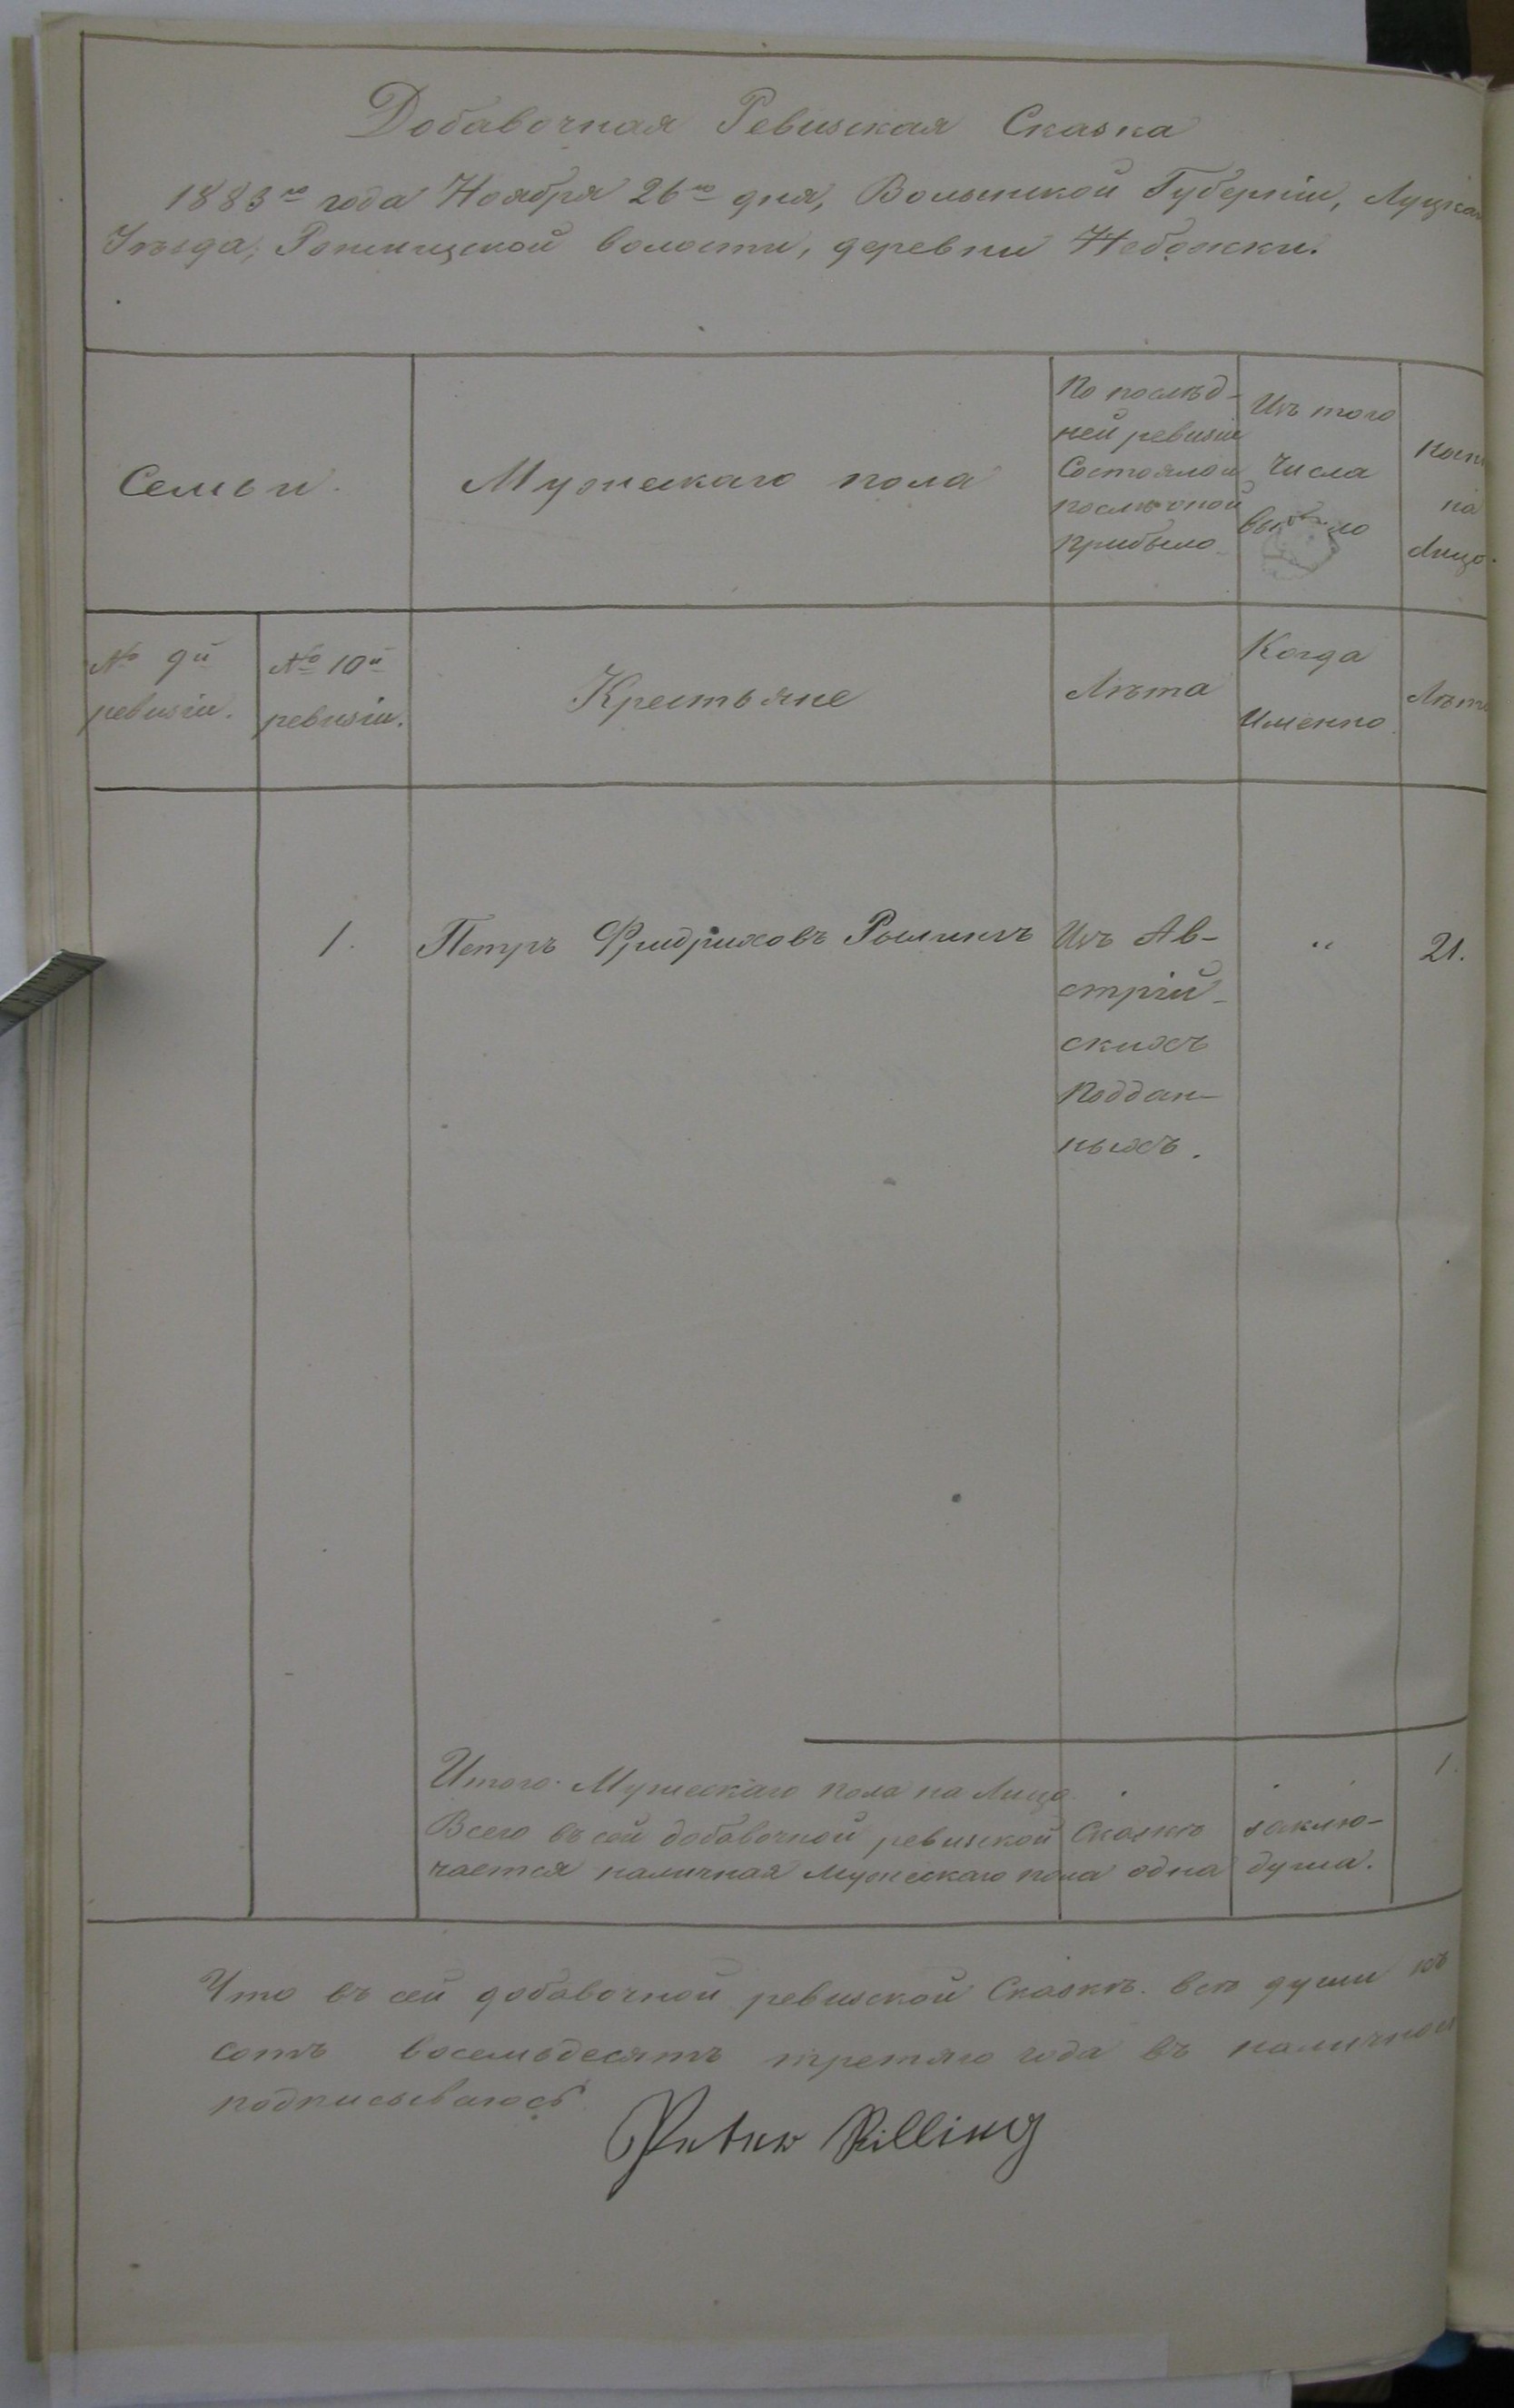 Добавочная Ревизская Сказка
1883го года Ноября 26го дня, Волынской Губерніи, Луцка
Уѣзда, Рожищской волости, деревни Небожки.
Семьи.
Мужескаго пола
По послѣд-
ней ревизіи
Состояло и
послѣ оной
прибыло
Изъ того
Числа
выбыло
на
Лицо.
№ 9й
ревизіи.
№ 10й
ревизіи.
Крестьяне
Лѣта
Когда
Именно
Лѣта
1. Петръ Фридриховъ Рылингъ Изъ Ав- " 21.
стрій-
скихъ
Поддан-
ныхъ.
Итого Мужескаго пола на Лицо . . . 1.
Всего въ сей добавочной ревизской Сказкѣ заклю-
чается наличная Мужескаго пола одна душа.
Что въ сей добавочной ревизской Сказкѣ всѣ души къ
сотъ восемьдесятъ третяго года въ налично
подписываюсь
Peter Rilling